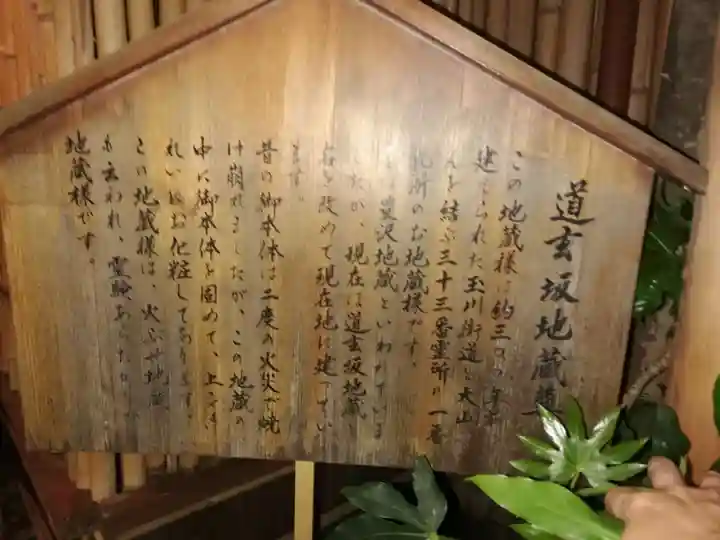 道玄坂地蔵尊
この地蔵様は約三〇〇年前
建てられた玉川街道と大山
を結ぶ三十三番霊所の一番
札所のお地蔵様です。
豊沢地蔵といわれていま
したが、現在は道玄坂地蔵
と改めて現在地に建ってい
ます。
昔の御本体は二度の火災で焼
け崩れましたが、この地蔵の
中に御本体を固めて、上を
れいにお化粧してあります。
この地蔵様は、火ふせ地蔵
も云われ、霊験あらたか
地蔵様です。